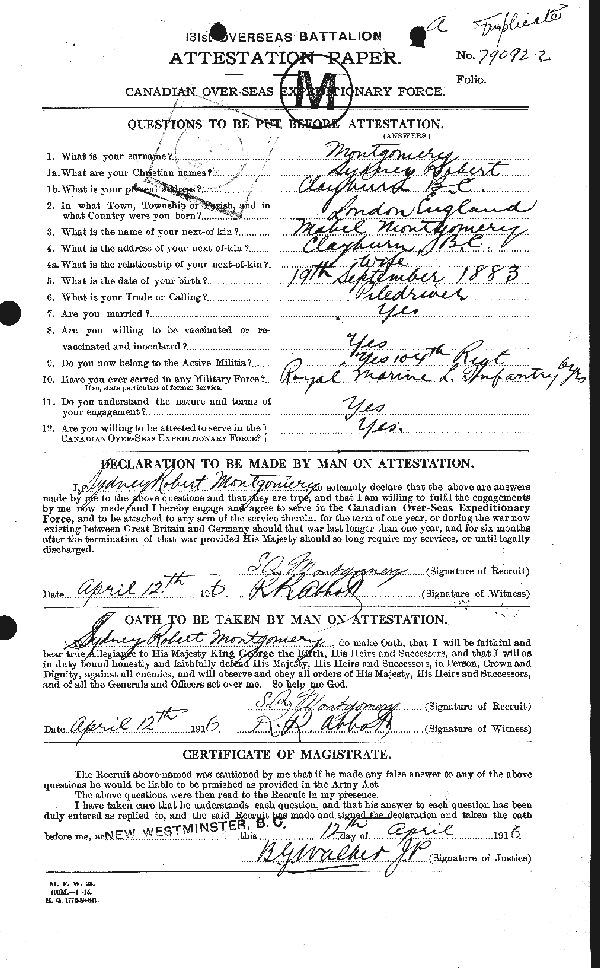 131st OVERSEAS BATTALION
A Triplicate
ATTESTATION PAPER.
No. 790922
Folio.
CANADIAN OVER-SEAS EXPEDITIONARY FORCE.
M
QUESTIONS TO BE PUT BEFORE ATTESTATION.
(ANSWERS)
1. What is your surname? Montgomery
1a. What are your Christian names? Sydney Robert
1b. What is your present address? Clayburn B.C.
2. In what Town, Township or Parish, and in
what Country were you born? London England
3. What is the name of your next-of-kin? Mabel Montgomery
4. What is the address of your next-of-kin? Clayburn, B.C.
4a. What is the relationship of your next-of-kin? Wife
5. What is the date of your birth? 19th September 1883
6. What is your Trade or Calling? Piledriver
7. Are you married? Yes
8. Are you willing to be vaccinated or re-
vaccinated and inoculated? Yes
9. Do you now belong to the Active Militia? Yes 104th Regt
10. Have you ever served in any Military Force? Royal Marine L. Infantry 6 yrs
If so, state particulars of former Service.
11. Do you understand the nature and terms of
your engagement? Yes
12. Are you willing to be attested to serve in the
CANADIAN OVER-SEAS EXPEDITIONARY FORCE? Yes.
DECLARATION TO BE MADE BY MAN ON ATTESTATION.
I, Sydney Robert Montgomery, do solemnly declare that the above are answers
made by me to the above questions and that they are true, and that I am willing to fulfil the engagements
by me now made, and I hereby engage and agree to serve in the Canadian Over-Seas Expeditionary
Force, and to be attached to any arm of the service therein, for the term of one year, or during the war now
existing between Great Britain and Germany should that war last longer than one year, and for six months
after the termination of that war provided His Majesty should so long require my services, or until legally
discharged.
S R Montgomery (Signature of Recruit)
Date April 12th 1916 R R Abbott (Signature of Witness)
OATH TO BE TAKEN BY MAN ON ATTESTATION.
I, Sydney Robert Montgomery, do make Oath, that I will be faithful and
bear true Allegiance to His Majesty King George the Fifth, His Heirs and Successors, and that I will as
in duty bound honestly and faithfully defend His Majesty, His Heirs and Successors, in Person, Crown and
Dignity, against all enemies, and will observe and obey all orders of His Majesty, His Heirs and Successors,
and of all the Generals and Officers set over me. So help me God.
S R Montgomery (Signature of Recruit)
Date April 12th 1916 R R Abbott (Signature of Witness)
CERTIFICATE OF MAGISTRATE.
The Recruit above-named was cautioned by me that if he made any false answer to any of the above
questions he would be liable to be punished as provided in the Army Act.
The above questions were then read to the Recruit in my presence.
I have taken care that he understands each question, and that his answer to each question has been
duly entered as replied to, and the said Recruit has made and signed the declaration and taken the oath
before me, at NEW WESTMINSTER, B. C. this 12th day of April 1916
B G Walker JP (Signature of Justice)
M. F. W. 23.